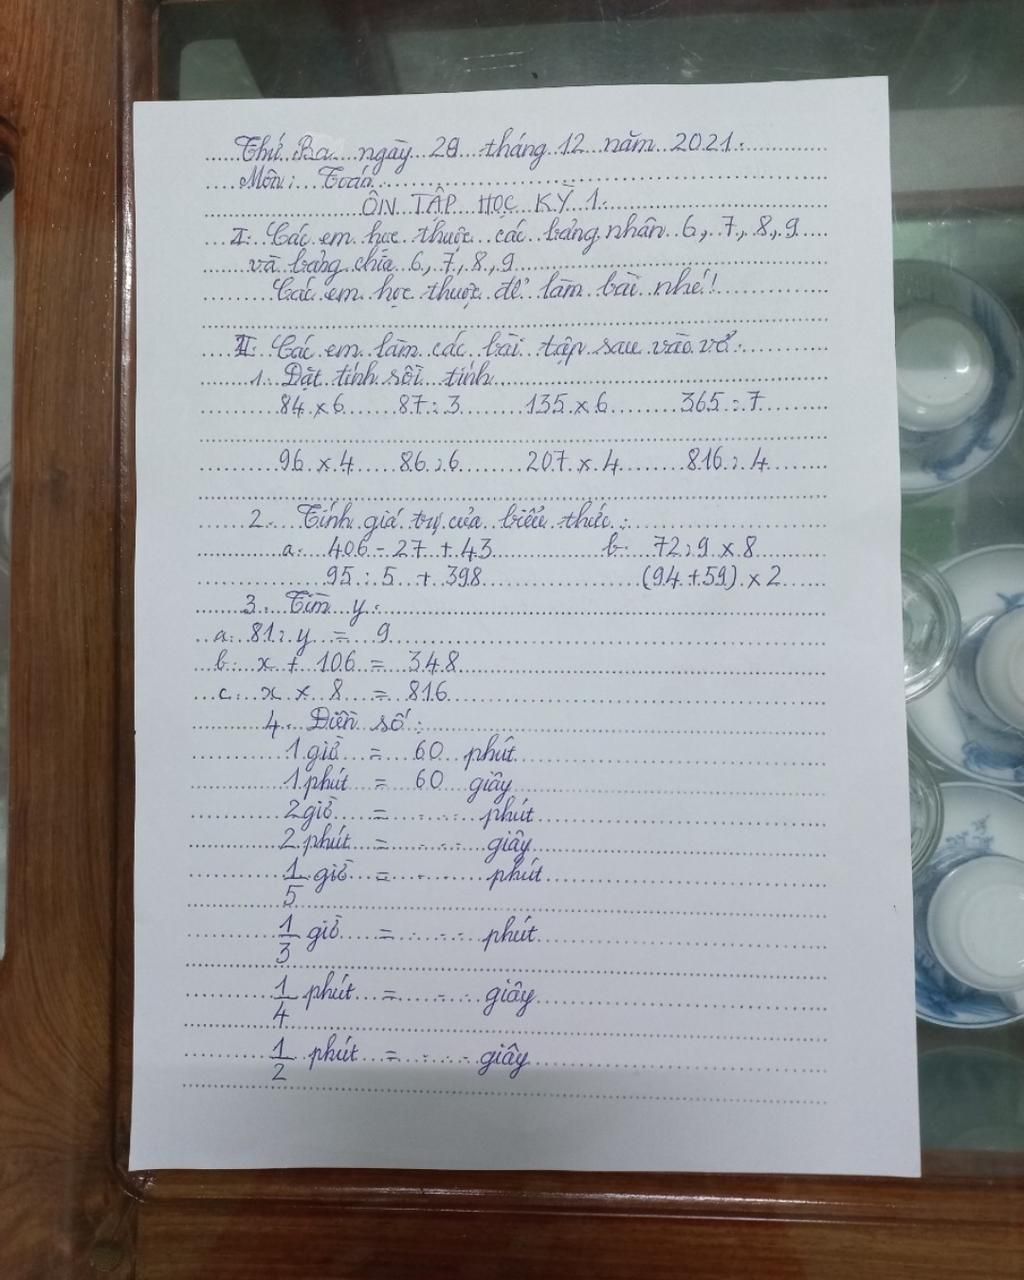 Thứ Ba ngày 28 tháng 12 năm 2021.
Môn: Toán
ÔN TẬP HỌC KỲ 1.
I. Các em học thuộc các bảng nhân 6, 7, 8, 9
và bảng chia 6, 7, 8, 9
Các em học thuộc để làm bài nhé!
II. Các em làm các bài tập sau vào vở.
1. Đặt tính rồi tính
84 x 6 87 : 3 135 x 6 365 : 7
96 x 4 86 : 6 207 x 4 816 : 4
2. Tính giá trị của biểu thức:
a. 406 - 27 + 43 b. 72 : 9 x 8
95 : 5 + 398 (94 + 59) x 2
3. Tìm y.
a. 81 : y = 9
b. x + 106 = 348
c. x x 8 = 816
4. Điền số:
1 giờ = 60 phút
1 phút = 60 giây
2 giờ = ...... phút
2 phút = ...... giây
1/5 giờ = ...... phút
1/3 giờ = ...... phút
1/4 phút = ...... giây
1/2 phút = ...... giây